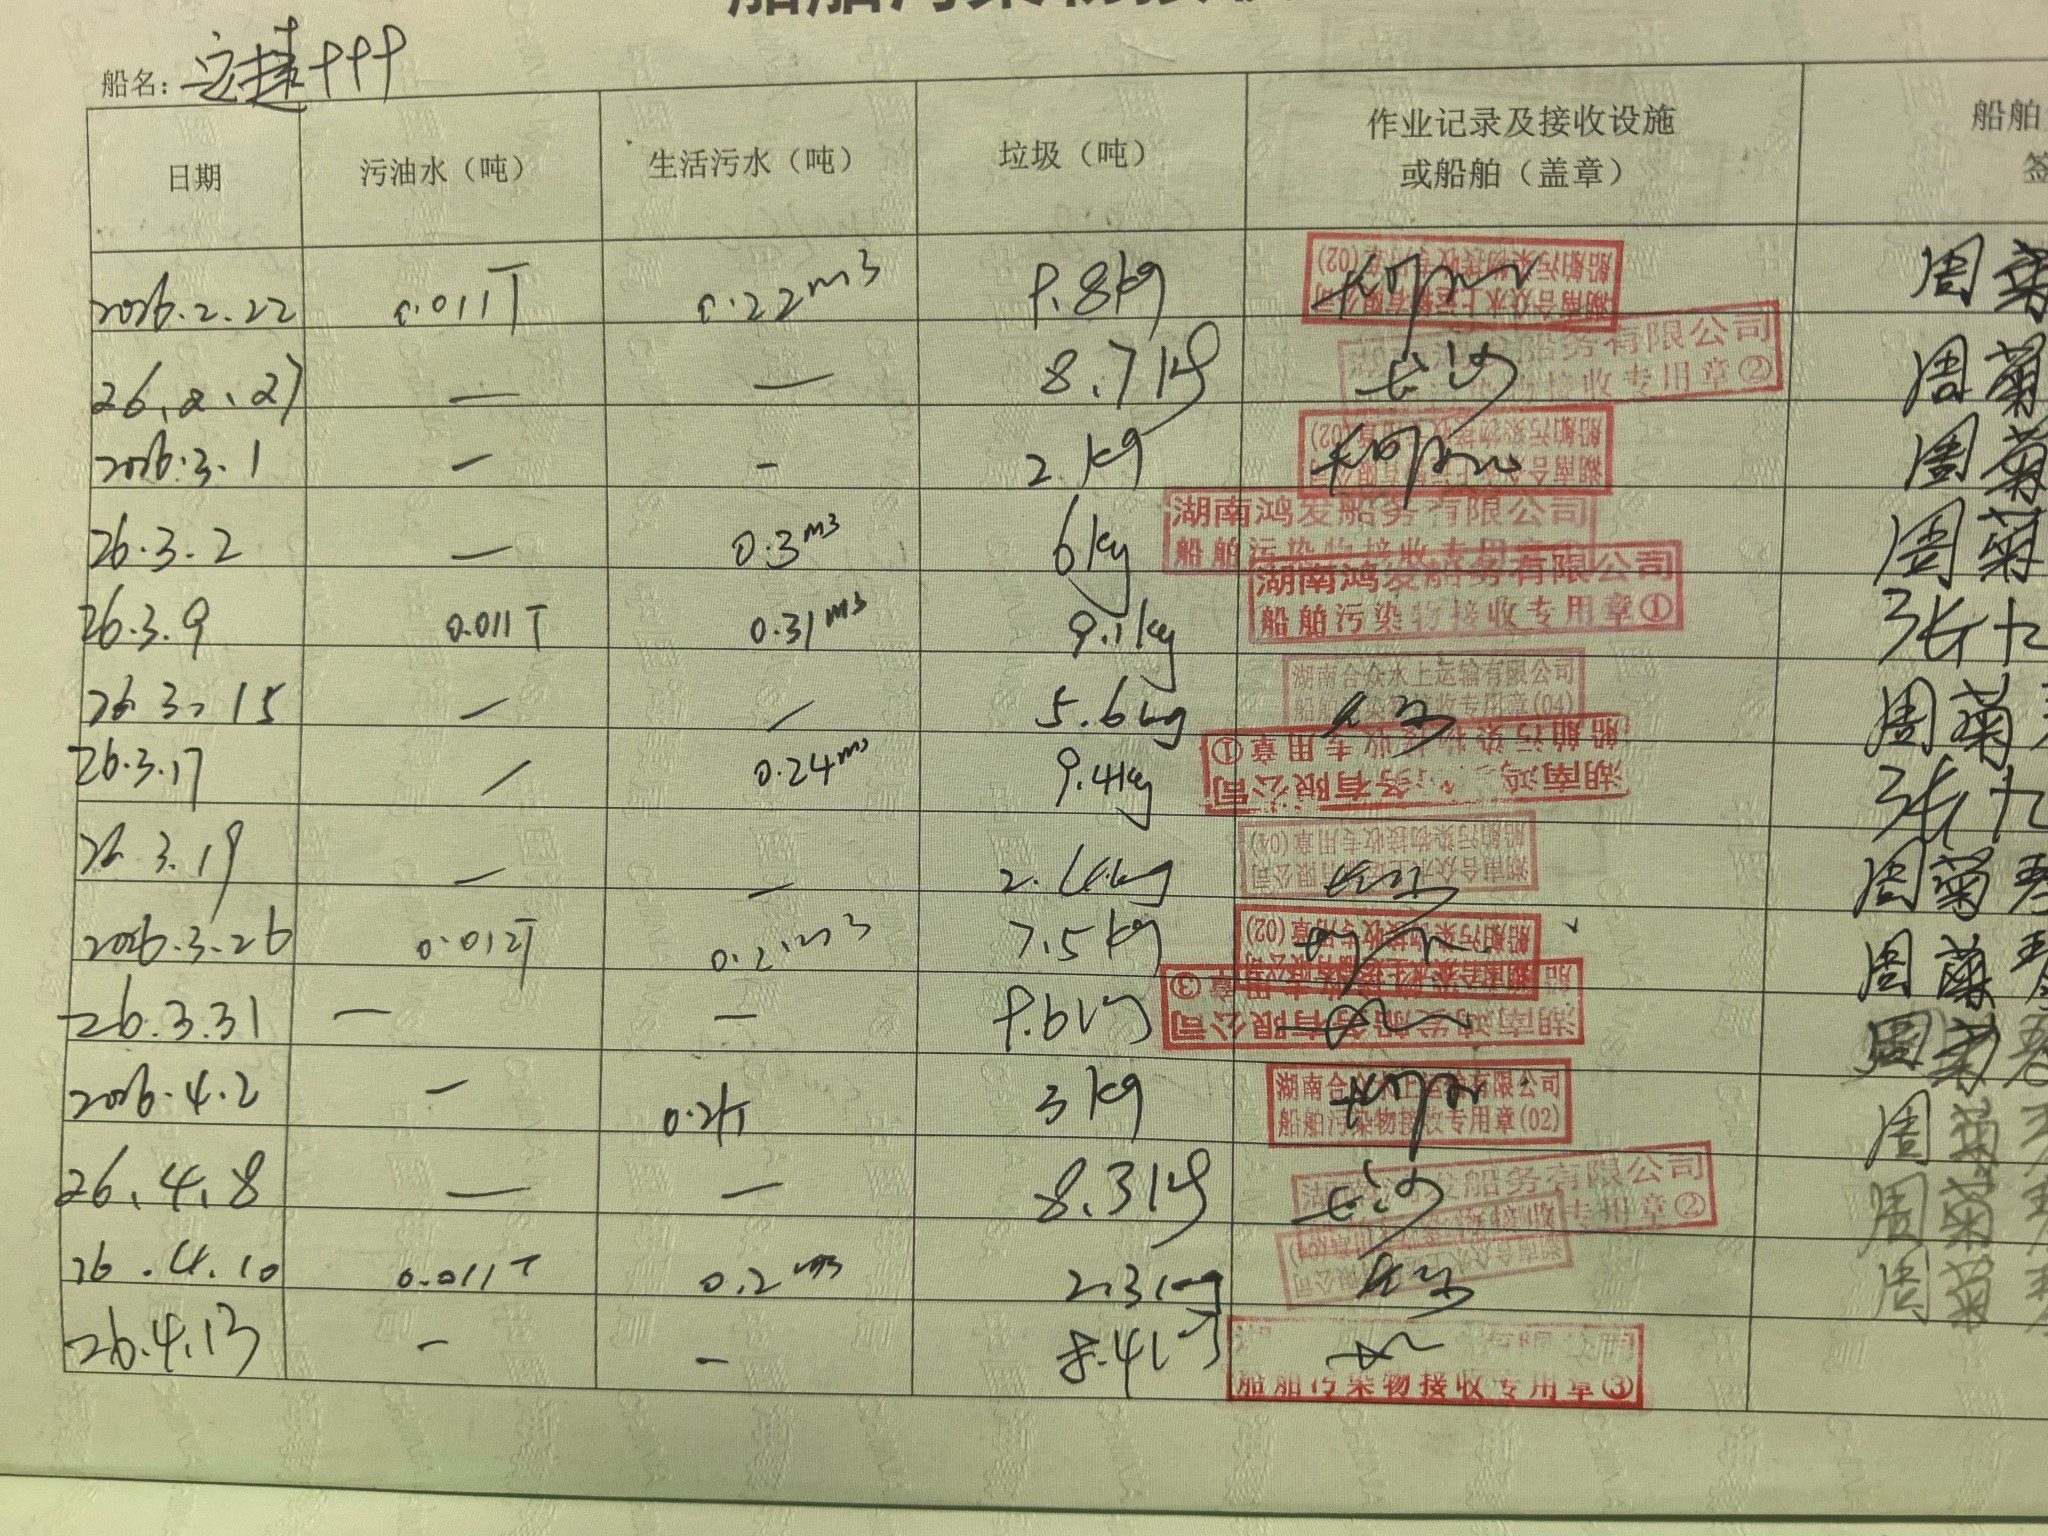 船名:
日期 污油水（吨） 生活污水（吨） 垃圾（吨） 作业记录及接收设施 船舶
或船舶（盖章） 签
2026.2.22 0.011T 0.22m3 9.8kg 周菊
湖南合众水上运输有限公司
船舶污染物接收专用章(02)
26.2.27 — — 8.7kg 长沙 周菊
船务有限公司
接收专用章②
2026.3.1 — — 2kg 周菊
26.3.2 — 0.3m3 6kg 周菊
湖南鸿发船务有限公司
船舶污染物接收专用章
26.3.9 0.011T 0.31m3 9.1kg 张九
湖南鸿发船务有限公司
船舶污染物接收专用章①
26.3.15 — — 5.6kg 周菊
湖南合众水上运输有限公司
船舶污染物接收专用章(04)
26.3.17 — 0.24m3 9.4kg 张九
船舶污染物接收专用章①
湖南鸿 务有限公司
26.3.19 — — 2.4kg 周菊琴
湖南合众水上运输有限公司
船舶污染物接收专用章(04)
2026.3.26 0.012T 7.5kg 周菊琴
船舶污染物接收专用章(02)
26.3.31 — — 9.6kg 周菊琴
湖南鸿发船务有限公司
2026.4.2 — 3kg 周菊
湖南合众水上运输有限公司
船舶污染物接收专用章(02)
26.4.8 — — 8.3kg 长沙 周菊
船务有限公司
专用章②
26.4.10 0.011T 0.2m3 2.3kg 周菊
26.4.13 — — 8.4kg
船舶污染物接收专用章③